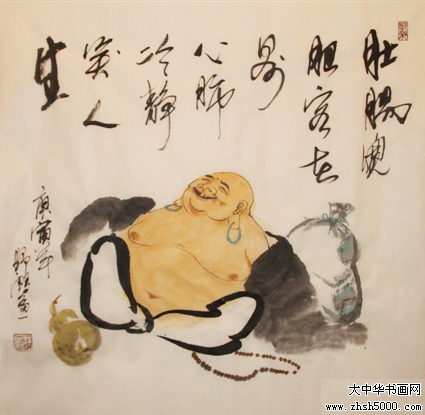 肚腸寬
胆容世
界
心肺
冷静
笑人
生
庚寅年
大中华书画网
www.zhsh5000.com